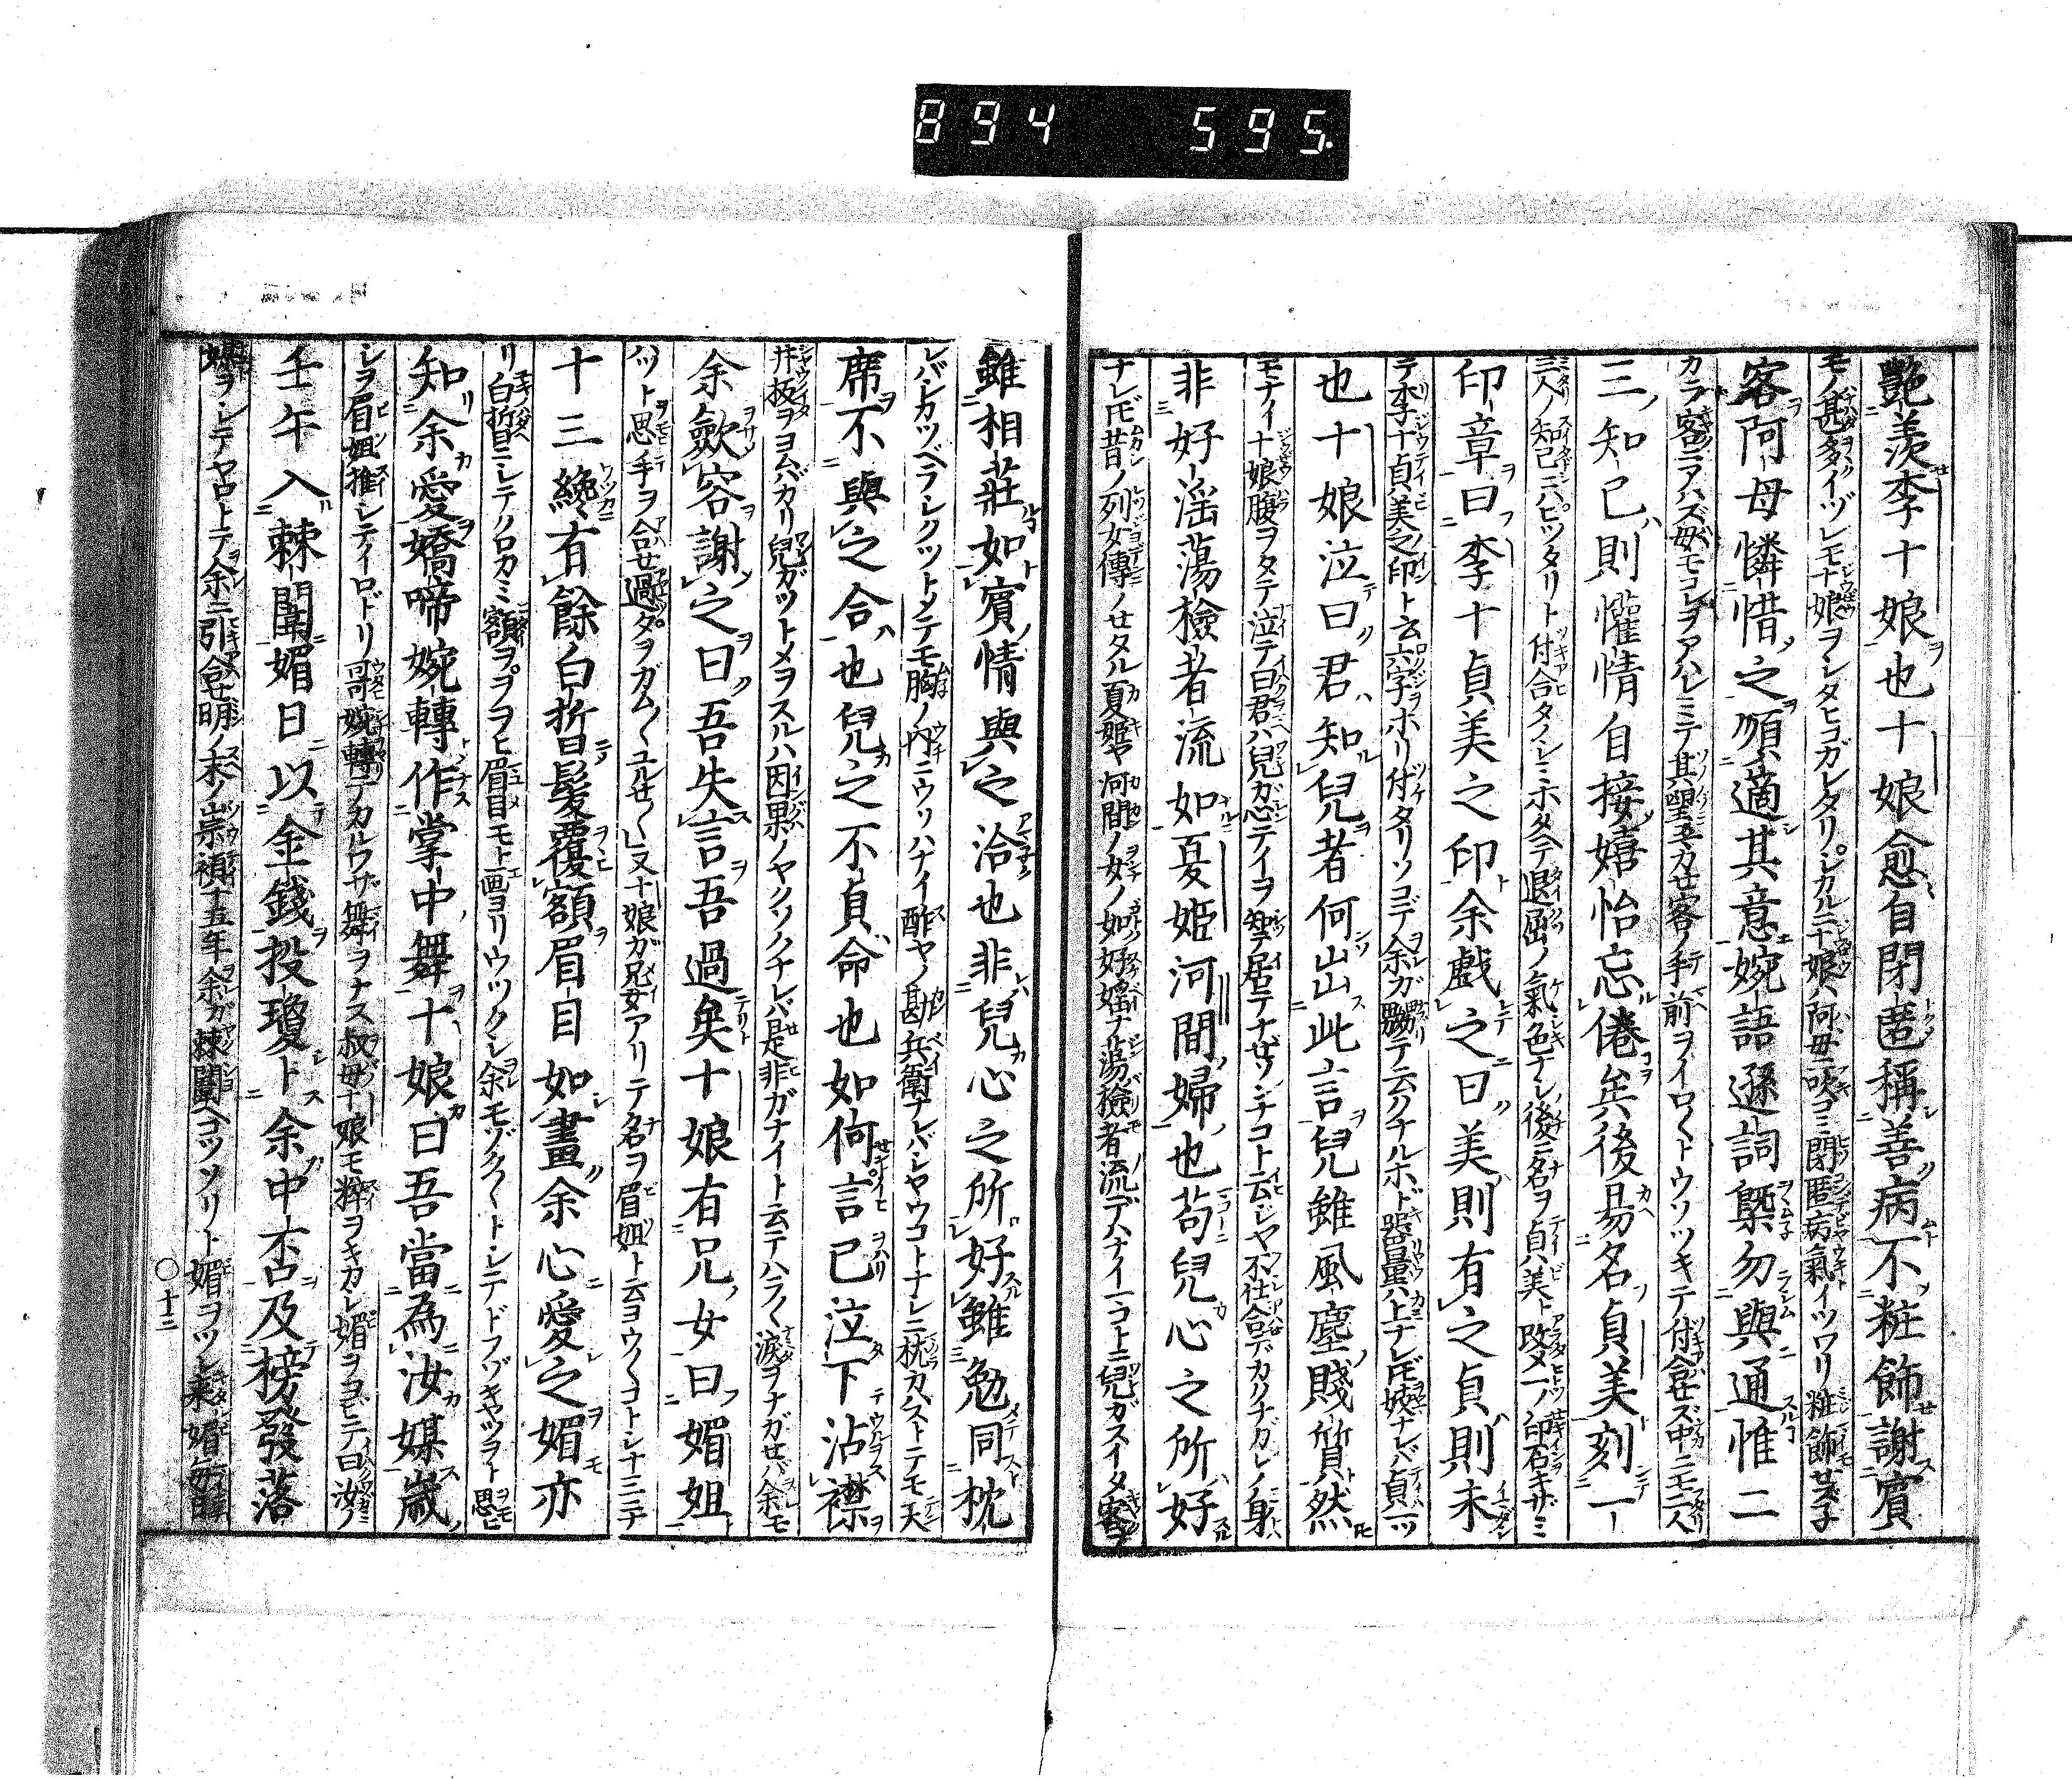 894 595
艶羨李十娘也十娘愈自閉匿稱善病不粧飾謝賓
モノ甚多クイヅレモ十娘ヲシタヒコガレタリシカルニ十娘ハ阿母ニ吹コミ閉匿病氣トイツワリ粧飾せズ
客阿母憐惜之順適其意婉語遜詞槩勿與通惟二
カラ客ニアハズ母モコレヲアハレミテ其望ニ方せ客ノ手前ヲイロ〱トウソツキテ付合せズ中ニモ二人
三知己則懽情自接嬉怡忘倦矣後易名貞美刻一
三人ノ知己ニハピツタリト付合タノシミホタヘテ退屈ノ氣色ナシ後ニ名ヲ貞美ト改メ一ノ印石キザミ
印章曰李十貞美之印余戲之曰美則有之貞則未
テ李十貞美之印ト云六字ヲホリ付タリソコデ余ガ嬲テ云クナルホド器量ハ上ナレ𪜈妓ナレバ貞一ツ
也十娘泣曰君知兒者何出此言兒雖風塵賤質然
モナイ十娘腹ヲタテ泣テ曰君ハ兒ガ心テイヲ知テ居テナゼソンナコト云ジヤ不仕合デカハチガレノ身
非好淫蕩檢者流如夏姬河間婦也苟兒心之所好
ナレ𪜈昔ノ列女傳ノせタル夏姬ヤ河間ノ女ノ如ク好婬ナ蕩檢者流デハナイ一コトニ兒ガスイタ客ナ
雖相莊如賓情與之洽也非兒心之所好雖勉同枕
レバシカツベラシクツトメテモ胸ノ内ニウソハナイ酢ヤノ甚兵衛ナレバシヤウコトナシニ枕カハストテモ天
席不與之合也兒之不貞命也如何言已泣下沾襟
井板ヲヨムバカリ兒ガツトメヲスルハ因果ノヤクソクナレバ是非ガナイト云テハラ〱淚ヲナガせバ余モ
余歛容謝之曰吾失言吾過矣十娘有兄女曰媚姐
ハツト思ヒ手ヲ合せ過ツタヲガム〱ユルせ〱又十娘ガ兄女アリテ名ヲ眉姐ト云ヨウ〱コトシ十三デ
十三纔有餘白皙髮覆額眉目如畫余心愛之媚亦
リ白晳ニシテクロカミ額ヲヲヒ眉目モト画ヨリウツクシ余モゾク〱トシテドフゾキヤツヲト思ヒ
知余愛嬌啼婉轉作掌中舞十娘曰吾當為汝媒歲
シヲ眉姐推シテイロドリ哥婉轉デカルワザ舞ヲナス叔母十娘モ粹ヲキカし媚ヲヨビテ曰汝ガ
壬午入棘闈媚日以金錢投瓊卜余中否及榜發落
媒ヲシテヤロトテ余ニ引合せ明ノ末ノ崇禎十五年余ガ棘闈ヘコツソリト媚ヲツレ來媚毎日
〇十三